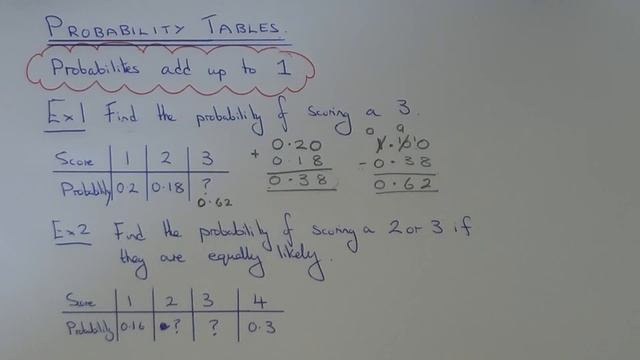 PROBABILITY TABLES.
Probabilites add up to 1
Ex1 Find the probability of scoring a 3.
Score 1 2 3
Probability 0.2 0.18 ?
0.62
0.20
+ 0.18
0.38
0 9
1.100
- 0.38
0.62
Ex2 Find the probability of scoring a 2 or 3 if
they are equally likely.
Score 1 2 3 4
Probability 0.16 ? ? 0.3